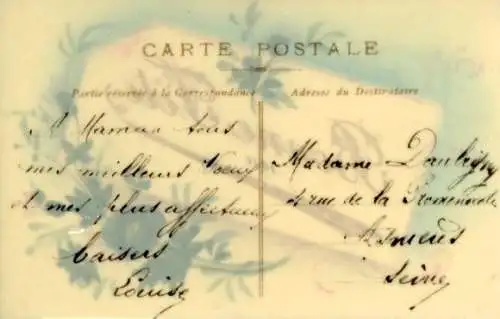 CARTE POSTALE
Partie réservée à la Correspondance
Adresse du Destinataire
A Maman tous
mes meilleurs Voeux
et mes plus affectueux
baisers
Louise
Madame Daubigny
4 rue de la Promenade
Asnières
Seine